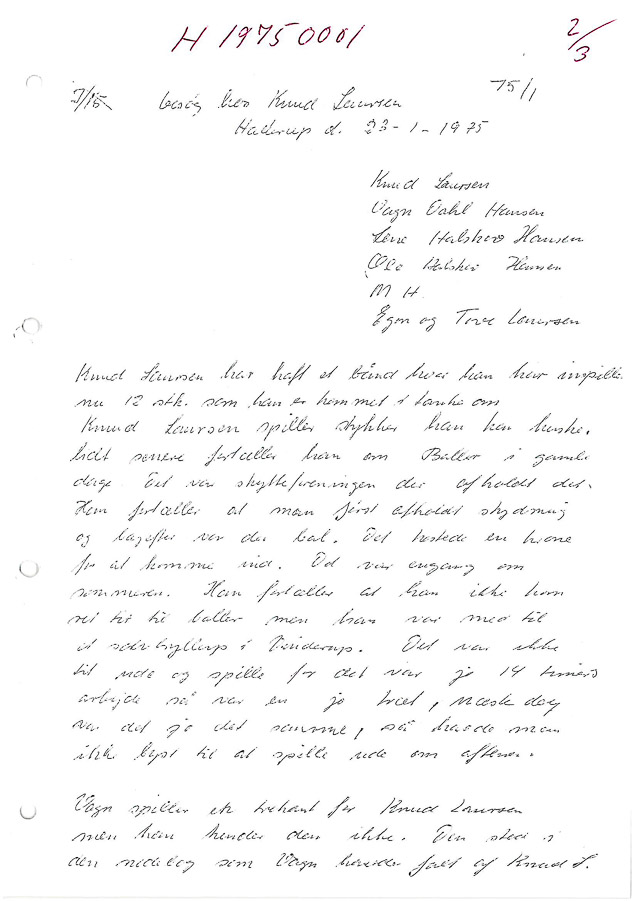 H 19750001
2/3
7/15
75/1
besøg hos Knud Laursen
Hallerup d. 23-1-1975
Knud Laursen
Vagn Dahl Hansen
Lene Halskov Hansen
Ole Halskov Hansen
M H.
Egon og Tove Laursen
Knud Laursen har haft et bånd hvor han har inspille
nu 12 stk. som han er kommet i tanke om
Knud Laursen spiller stykker han kan huske.
lidt senere fortæller han om Baller i gamle
dage. Det var skytteforeningen der afholdt det.
Han fortæller at man først afholdt skydning
og bagefter var der bal. Det kostede en krone
for at komme ind. Det var engang om
sommeren. Han fortæller at han ikke kom
ret tit til baller men han var med til
et sølvbryllup i Vinderup. Det var ikke
tit ude og spille for det var jo 14 timers
arbejde så var en jo træt, næste dag
var det jo det samme, så havde man
ikke lyst til at spille ude om aftenen.
Vagn spiller en trekant for Knud Laursen
men han kender den ikke. Den sted i
den nodebog som Vagn havde fået af Knud L.